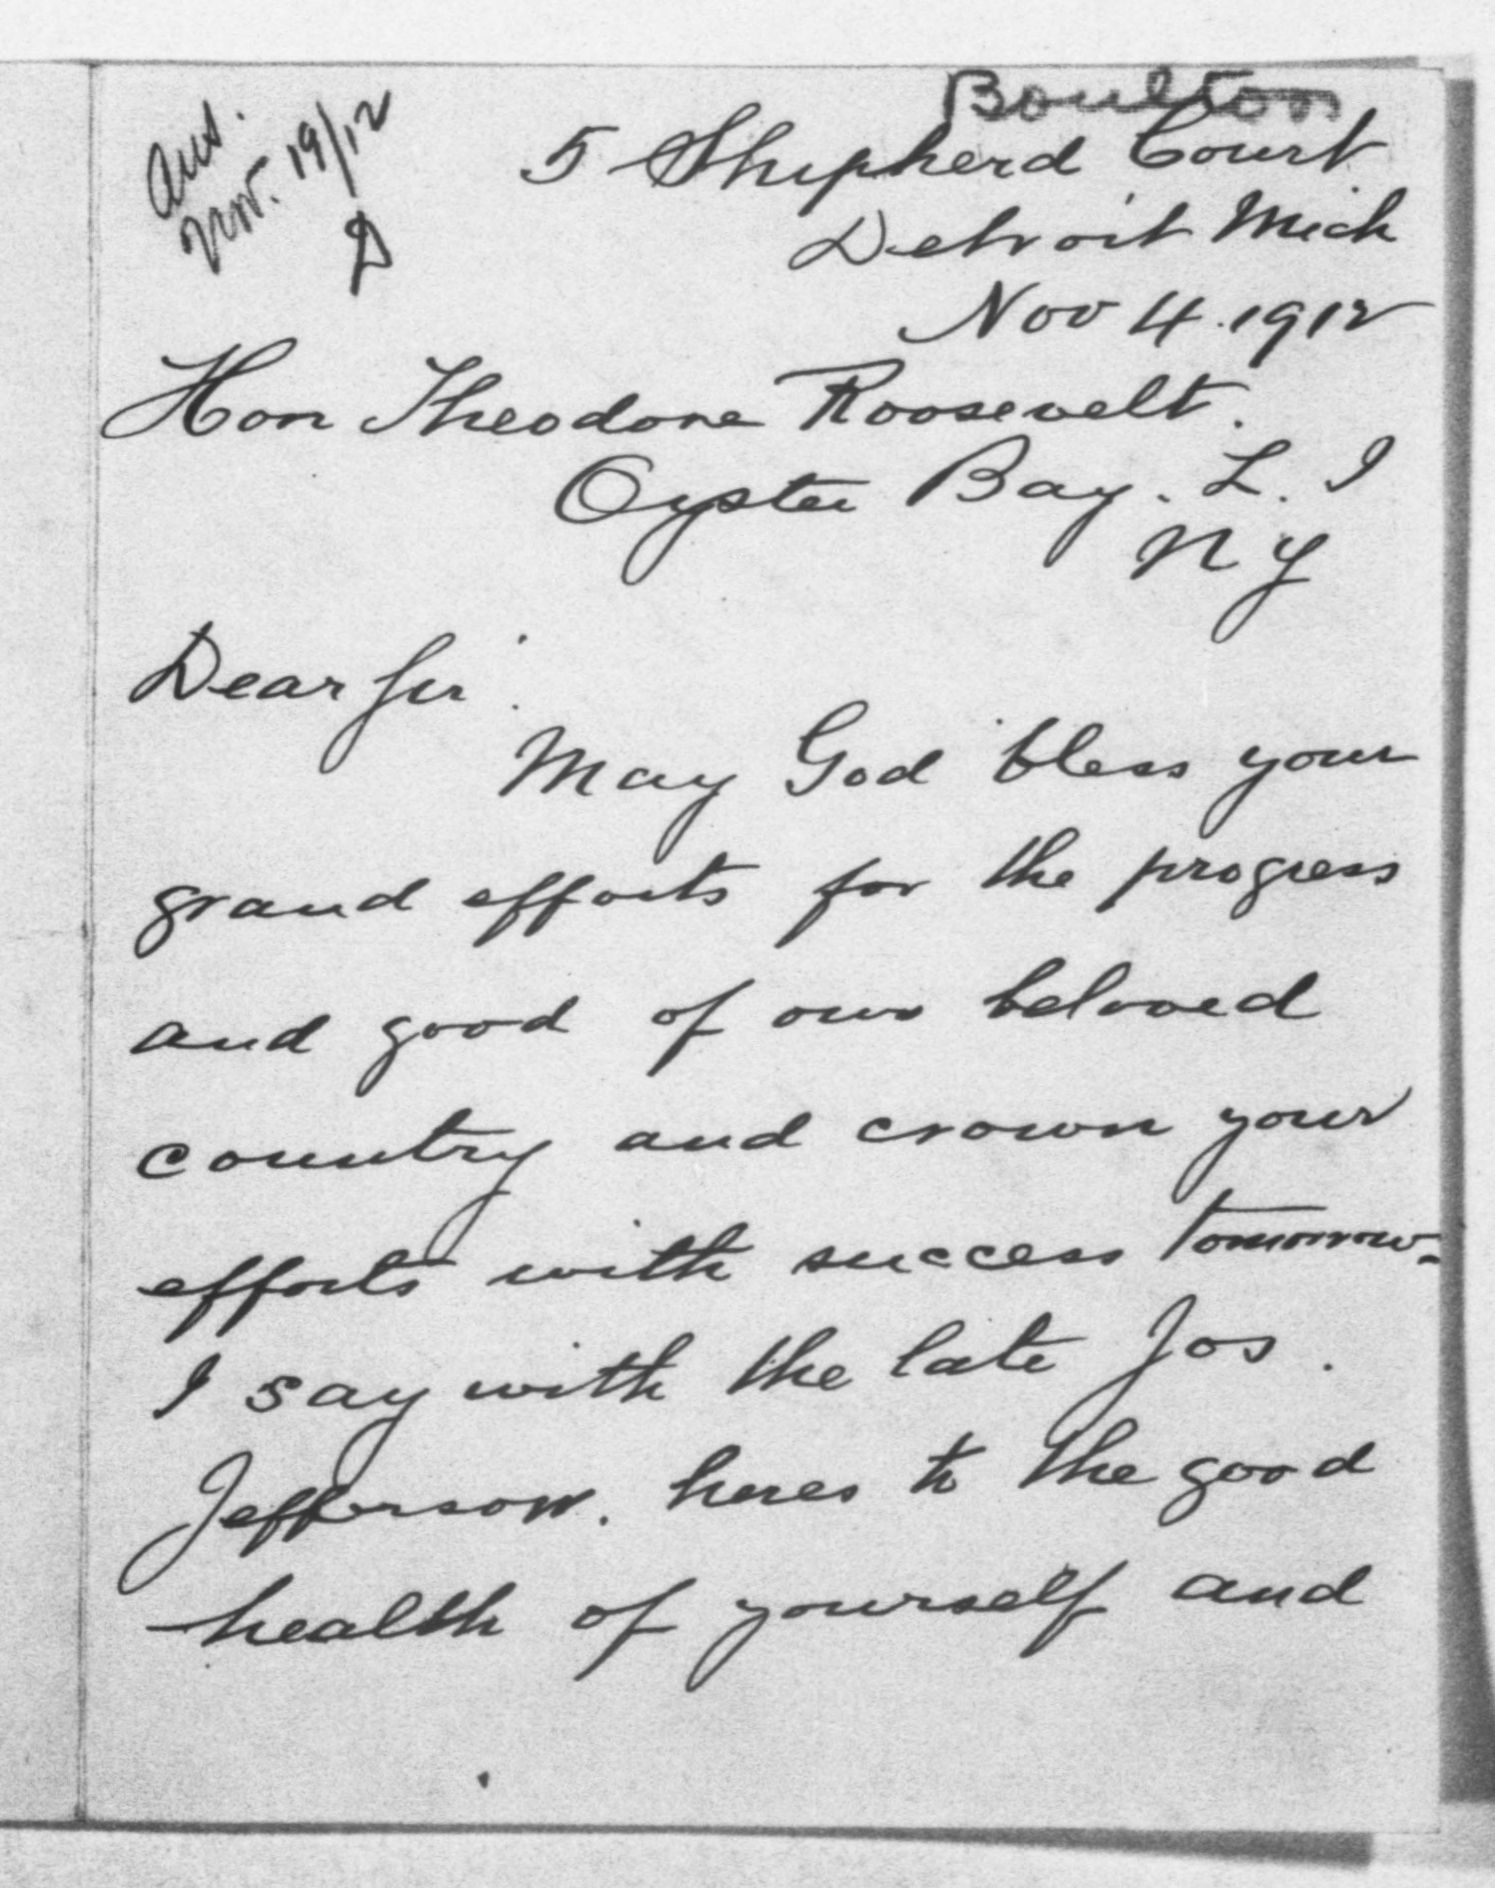 Boulton
Ans.
Nov. 19/12
D
5 Shepherd Court
Detroit Mich
Nov 4. 1912
Hon Theodore Roosevelt.
Oyster Bay. L. I
N Y
Dear Sir.
May God bless your
grand efforts for the progress
and good of our beloved
country and crown your
efforts with success tomorrow.
I say with the late Jos.
Jefferson. heres to the good
health of yourself and